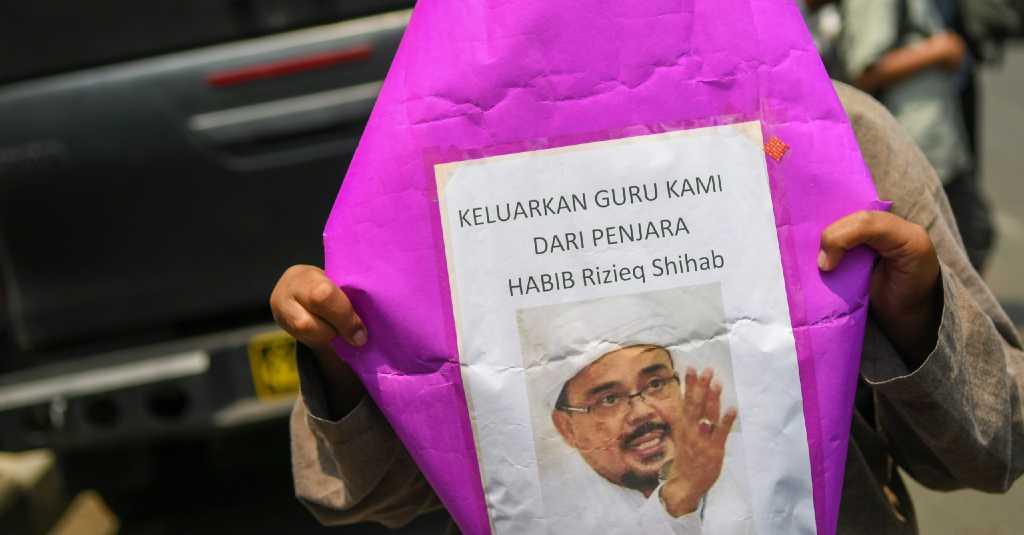 KELUARKAN GURU KAMI
DARI PENJARA
HABIB Rizieq Shihab